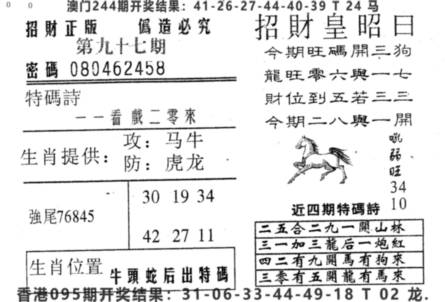 澳门244期开奖结果：41-26-27-44-40-39 T 24 马
招財正版 偽造必究
第九十七期
密碼 080462458
特碼詩
一一看戲二零來
生肖提供：
攻：马牛
防：虎龙
強尾76845
30 19 34
42 27 11
生肖位置
牛頭蛇后出特碼
招財皇昭日
今期旺碼開三狗
龍旺零六與一七
財位到五若三三
今期二八與一開
吼
弱
旺
34
10
近四期特碼詩
二五合二九一開山林
三一加三龍后一炮紅
四二有九開馬有狗來
三零有五開龍有馬來
香港095期开奖结果：31-06-33-44-49-18 T 02 龙.